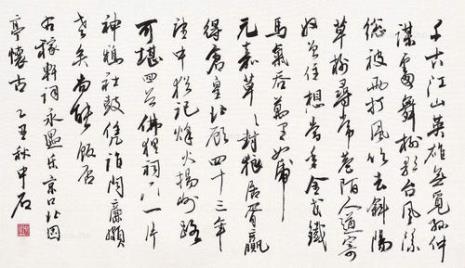 千古江山英雄無覓孫仲
謀處舞榭歌台風流
總被雨打風吹去斜陽
草樹尋常巷陌人道寄
奴曾住想當年金戈鐵
馬氣吞萬里如虎
元嘉草々封狼居胥贏
得倉皇北顧四十三年
望中猶記烽火揚州路
可堪回首佛狸祠下一片
神鴉社鼓憑誰問廉頗
老矣尚能飯否
右稼軒詞永遇樂京口北固
亭懷古 乙丑秋中石